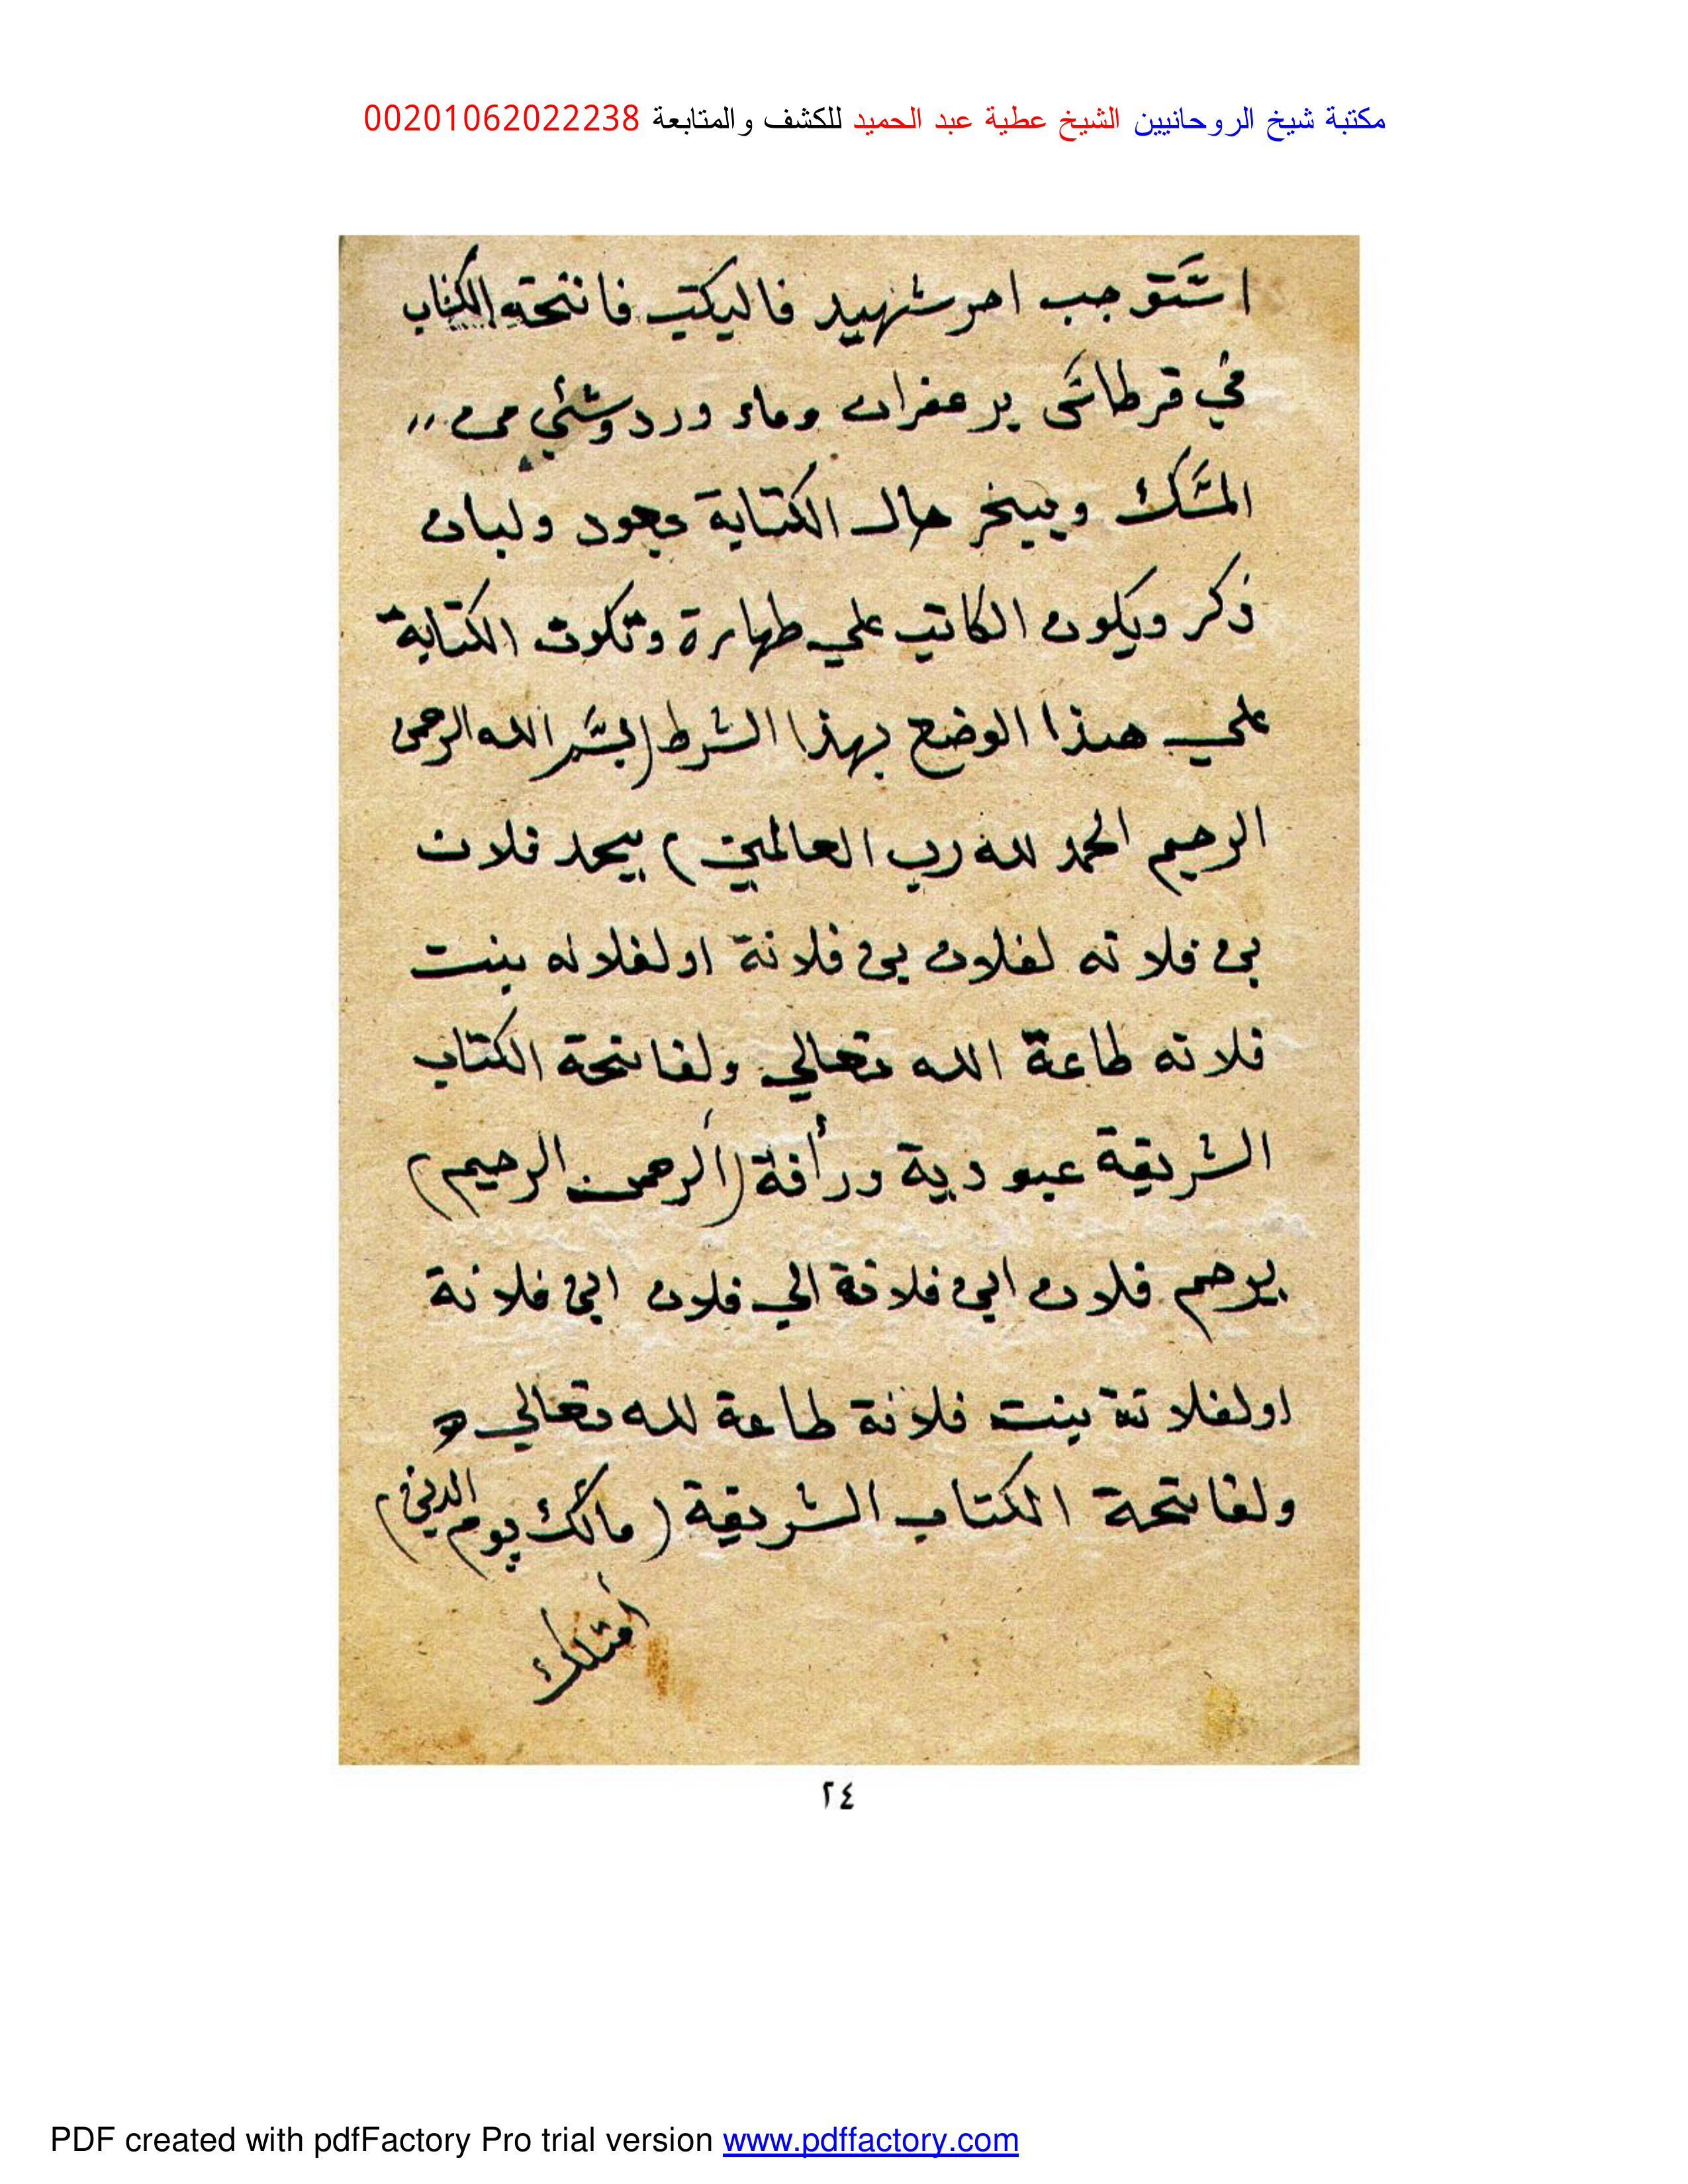 مكتبة شيخ الروحانيين الشيخ عطية عبد الحميد للكشف والمتابعة 00201062022238
استوجب اجر شهيد فاليكتب فاتحة الكتاب
في قرطاس بزعفران وماء ورد وشئي من ,,
المسك ويبخر حال الكتابة بعود ولبان
ذكر ويكون الكاتب علي طهارة وتكون الكتابة
علي هذا الوضع بهذا الشرط (بسم الله الرحمن
الرحيم الحمد لله رب العالمين) يحمد فلان
بن فلانه لفلان بن فلانة او لفلانه بنت
فلانه طاعة الله تعالي ولفاتحة الكتاب
الشريفة عبودية ورأفة (الرحمن الرحيم)
يرحم فلان ابن فلانة الي فلان ابن فلانة
او لفلانة بنت فلانة طاعة لله تعالي و
ولفاتحة الكتاب الشريفة (مالك يوم الدين)
امتلك
٢٤
PDF created with pdfFactory Pro trial version www.pdffactory.com